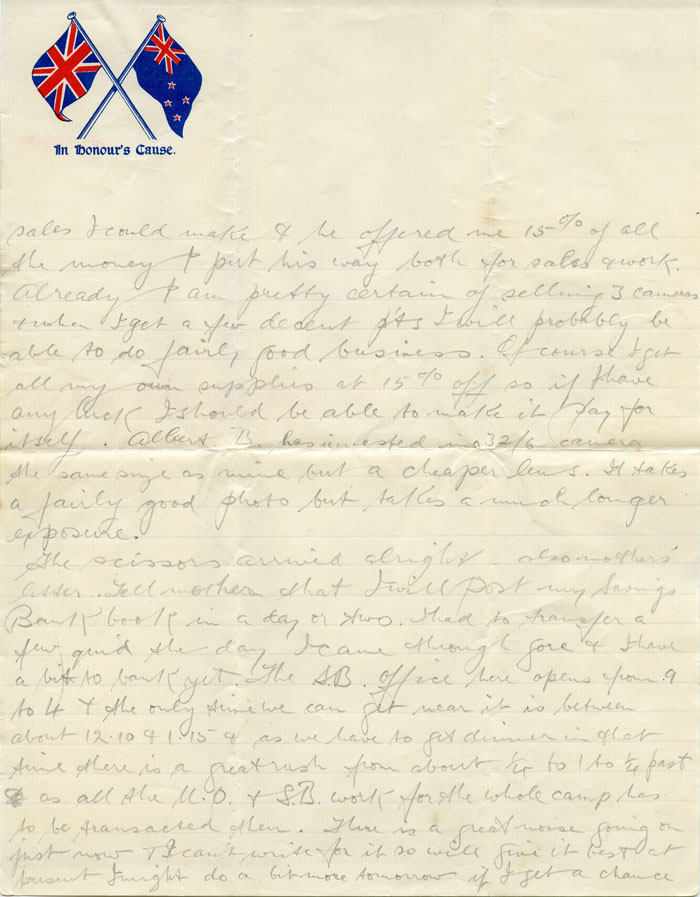 In Honour's Cause.
sales I could make & he offered me 15% of all
the money I put his way both for sales & work.
Already I am pretty certain of selling 3 cameras
& when I get a few decent pts I will probably be
able to do fairly good business. Of course I get
all my own supplies at 15% off so if I have
any luck I should be able to make it pay for
itself. Albert B. has invested in a 32/6 camera
the same size as mine but a cheaper lens. It takes
a fairly good photo but takes a much longer
exposure.
The scissors arrived alright also mothers'
letter. Tell mother that I will post my Savings
Bank book in a day or two. I had to transfer a
few quid the day I came through Gore & I have
a bit to bank yet. The S.B. office here opens from 9
to 4 & the only time we can get near it is between
about 12.10 & 1.15 & as we have to get dinner in that
time there is a great rush from about ¼ to 1 to ¼ past
as all the M.O. & S.B. work for the whole camp has
to be transacted then. There is a great noise going on
just now & I can't write for it so will give it best at
present I might do a bit more tomorrow if I get a chance